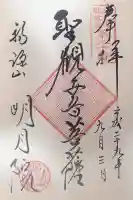 奉拝
平成二十九年
九月三日
聖観世音菩薩
福源山
明月院